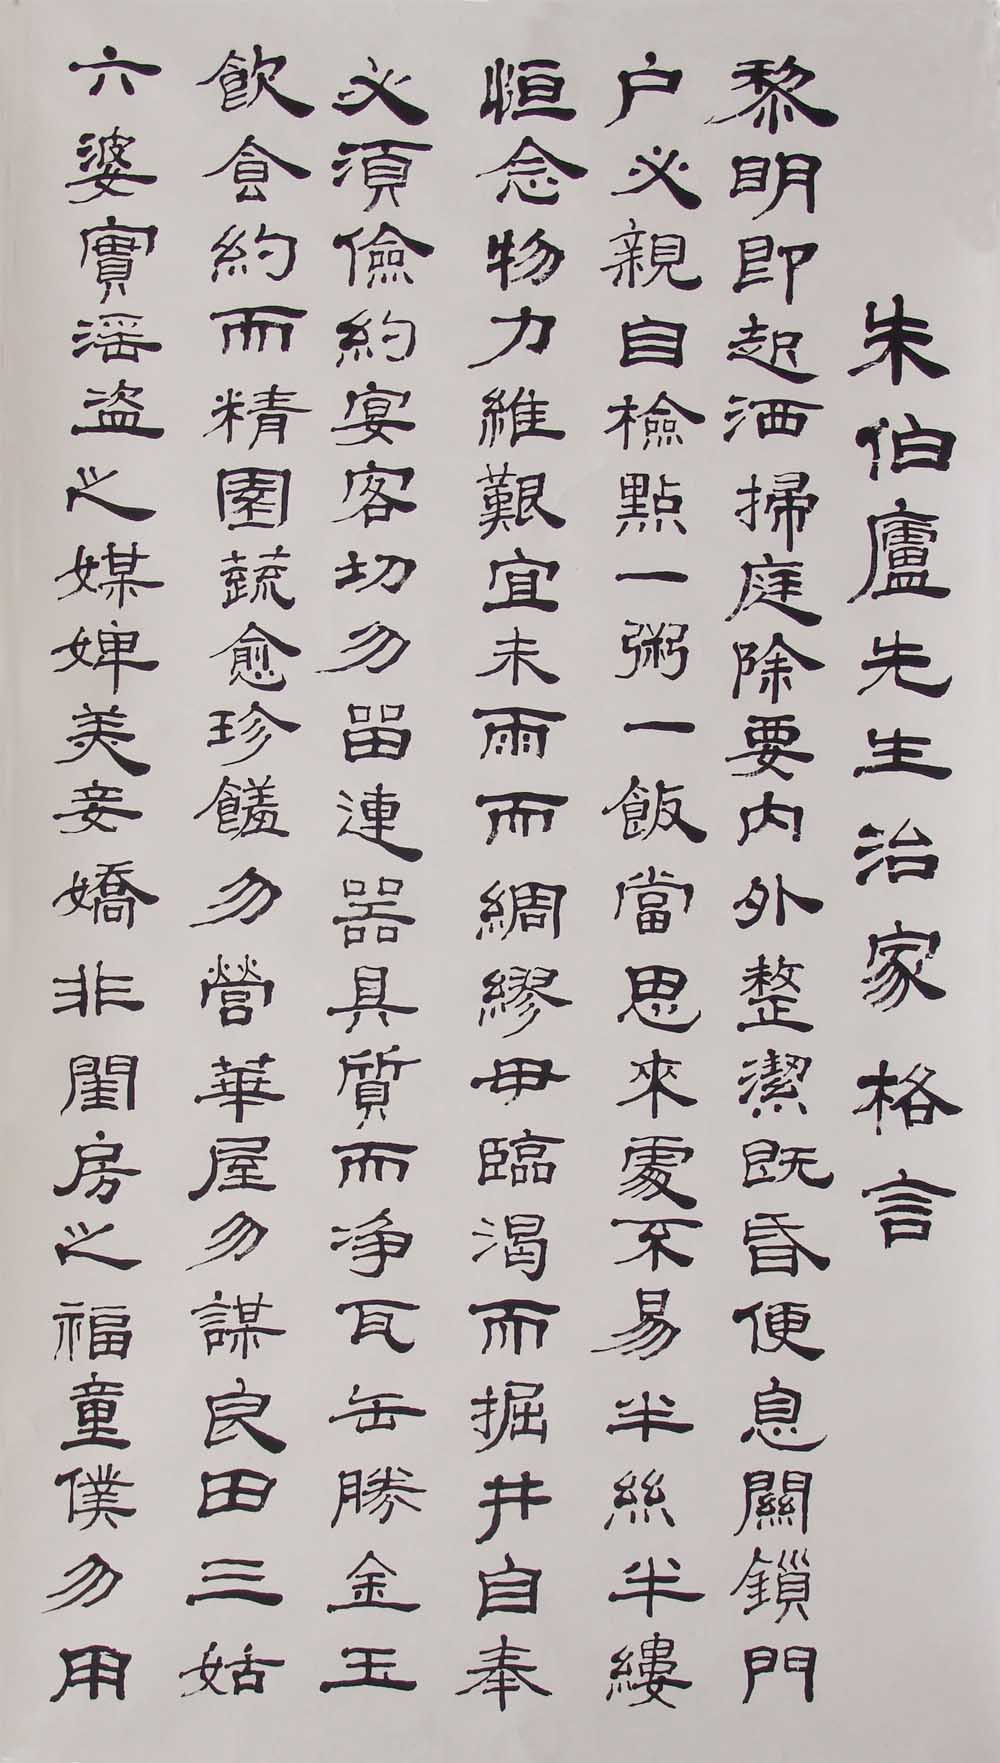 朱伯廬先生治家格言
黎明即起洒掃庭除要内外整潔既昏便息關鎖門
户必親自檢點一粥一飯當思來處不易半絲半縷
恒念物力維艱宜未雨而綢繆毋臨渴而掘井自奉
必須儉約宴客切勿留連器具質而净瓦缶勝金玉
飲食約而精園蔬愈珍饈勿營華屋勿謀良田三姑
六婆實淫盗之媒婢美妾嬌非閨房之福童僕勿用